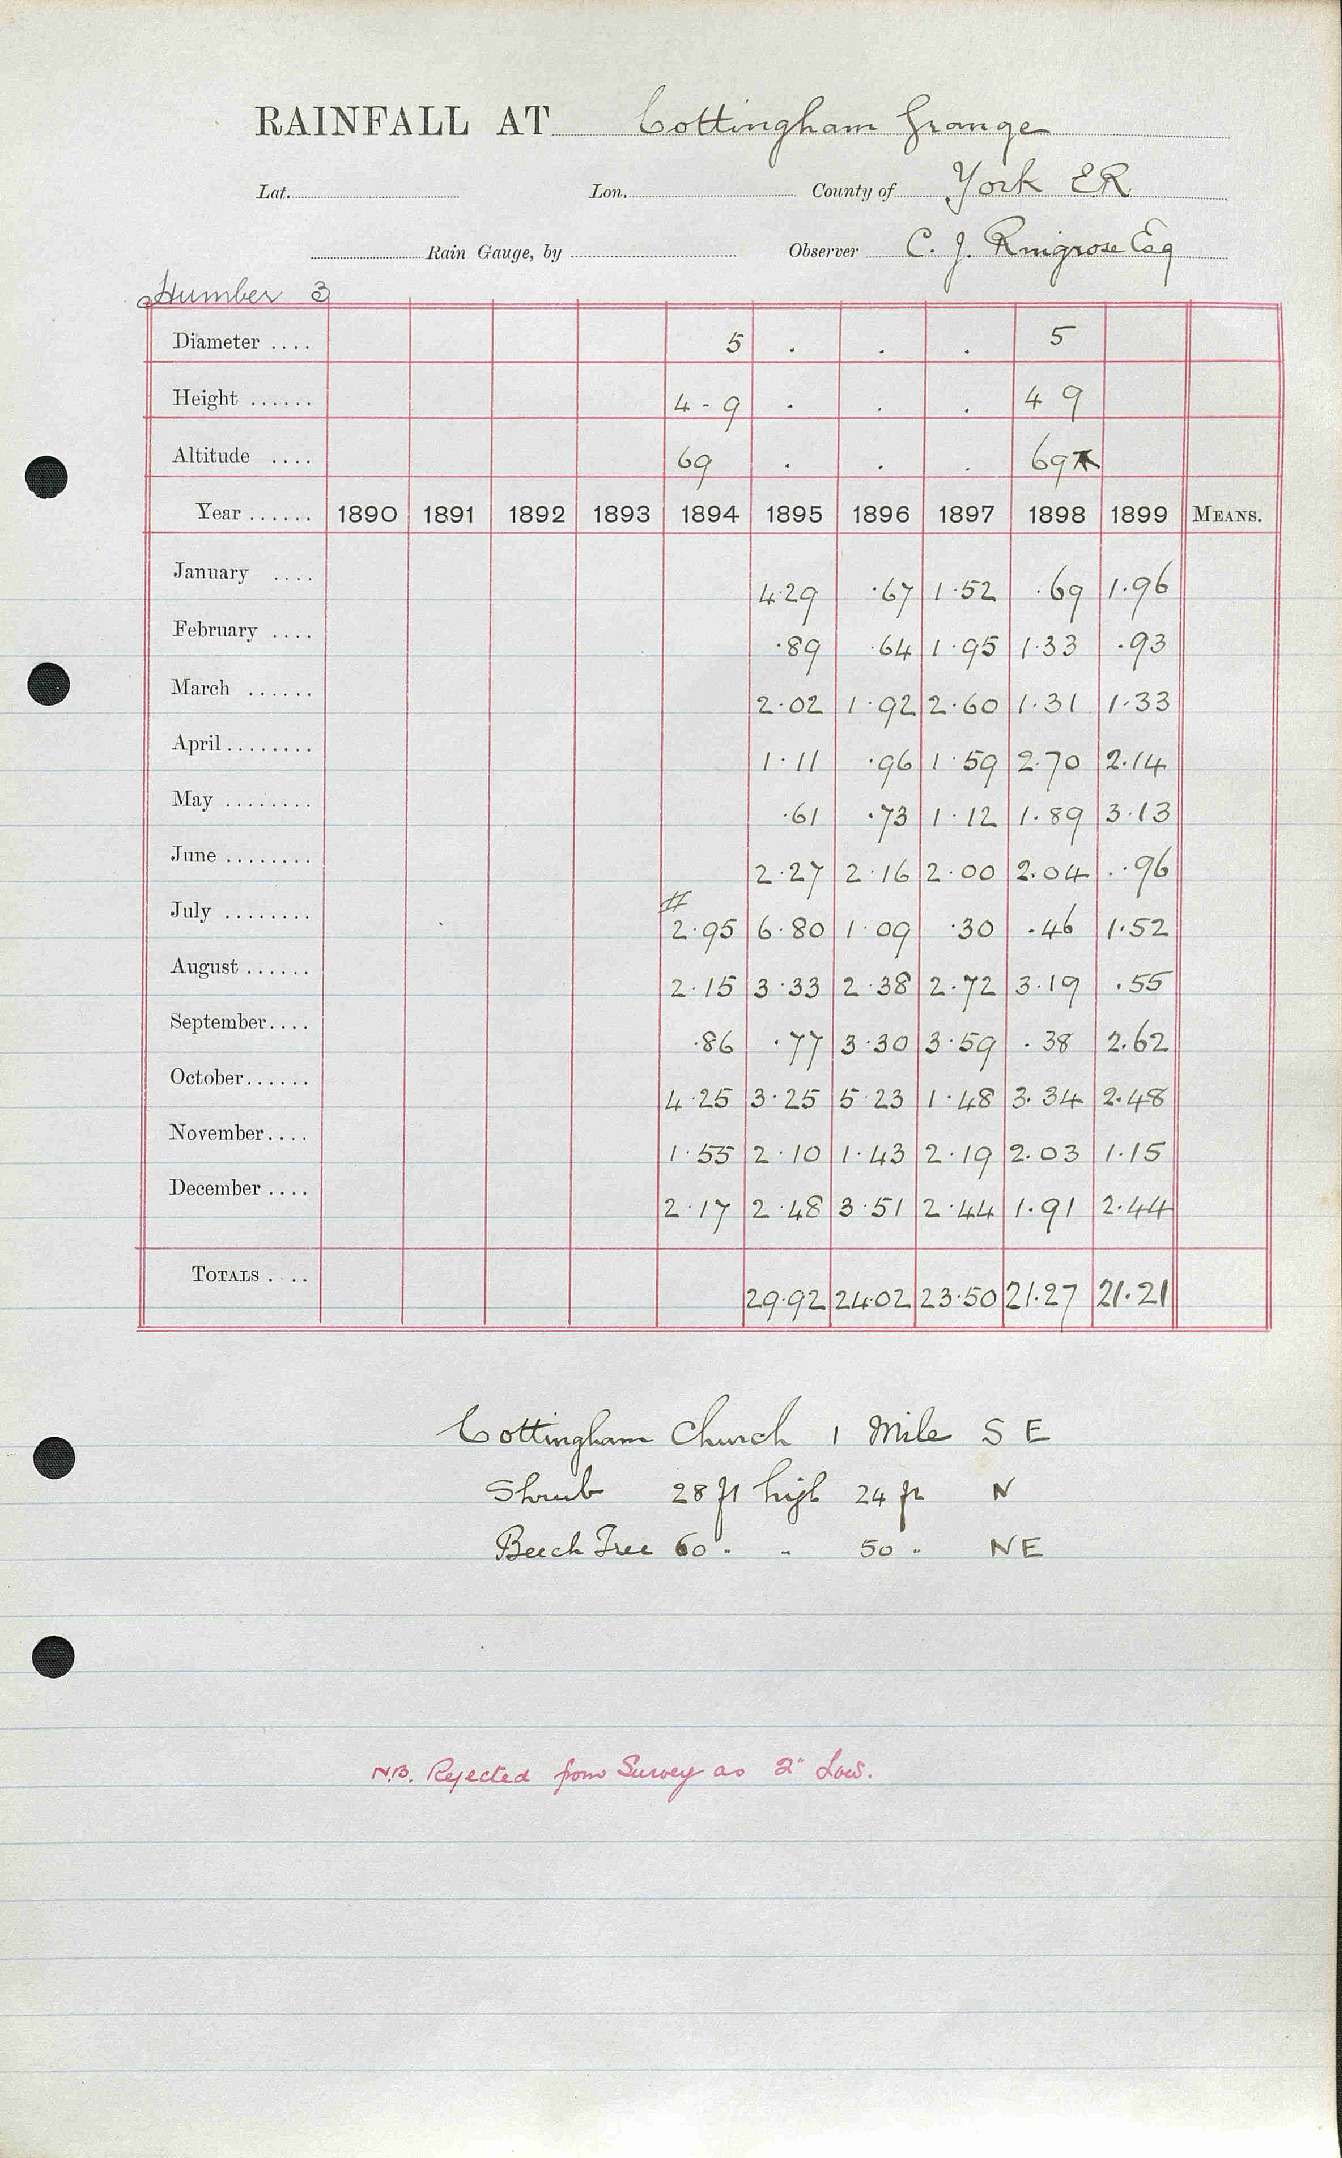 RAINFALL AT Cottingham Grange
Lat. Lon. County of York ER
Rain Gauge, by Observer C. J. Ringrose Esq
Humber 3
Diameter .... 5 . . . 5
Height ...... 4-9 . . . 4 9
Altitude .... 69 . . . 69
Year ...... 1890 1891 1892 1893 1894 1895 1896 1897 1898 1899 MEANS.
January .... 4.29 .67 1.52 .69 1.96
February .... .89 .64 1.95 1.33 .93
March ...... 2.02 1.92 2.60 1.31 1.33
April ........ 1.11 .96 1.59 2.70 2.14
May ........ .61 .73 1.12 1.89 3.13
June ........ 2.27 2.16 2.00 2.04 .96
July ........ # 2.95 6.80 1.09 .30 .46 1.52
August ...... 2.15 3.33 2.38 2.72 3.19 .55
September.... .86 .77 3.30 3.59 .38 2.62
October...... 4.25 3.25 5.23 1.48 3.34 2.48
November.... 1.55 2.10 1.43 2.19 2.03 1.15
December .... 2.17 2.48 3.51 2.44 1.91 2.44
TOTALS .... 29.92 24.02 23.50 21.27 21.21
Cottingham Church 1 Mile S E
Shrub 28 ft high 24 ft N
Beech Tree 60 " " 50 " NE
N.B. Rejected from Survey as 2" Low.